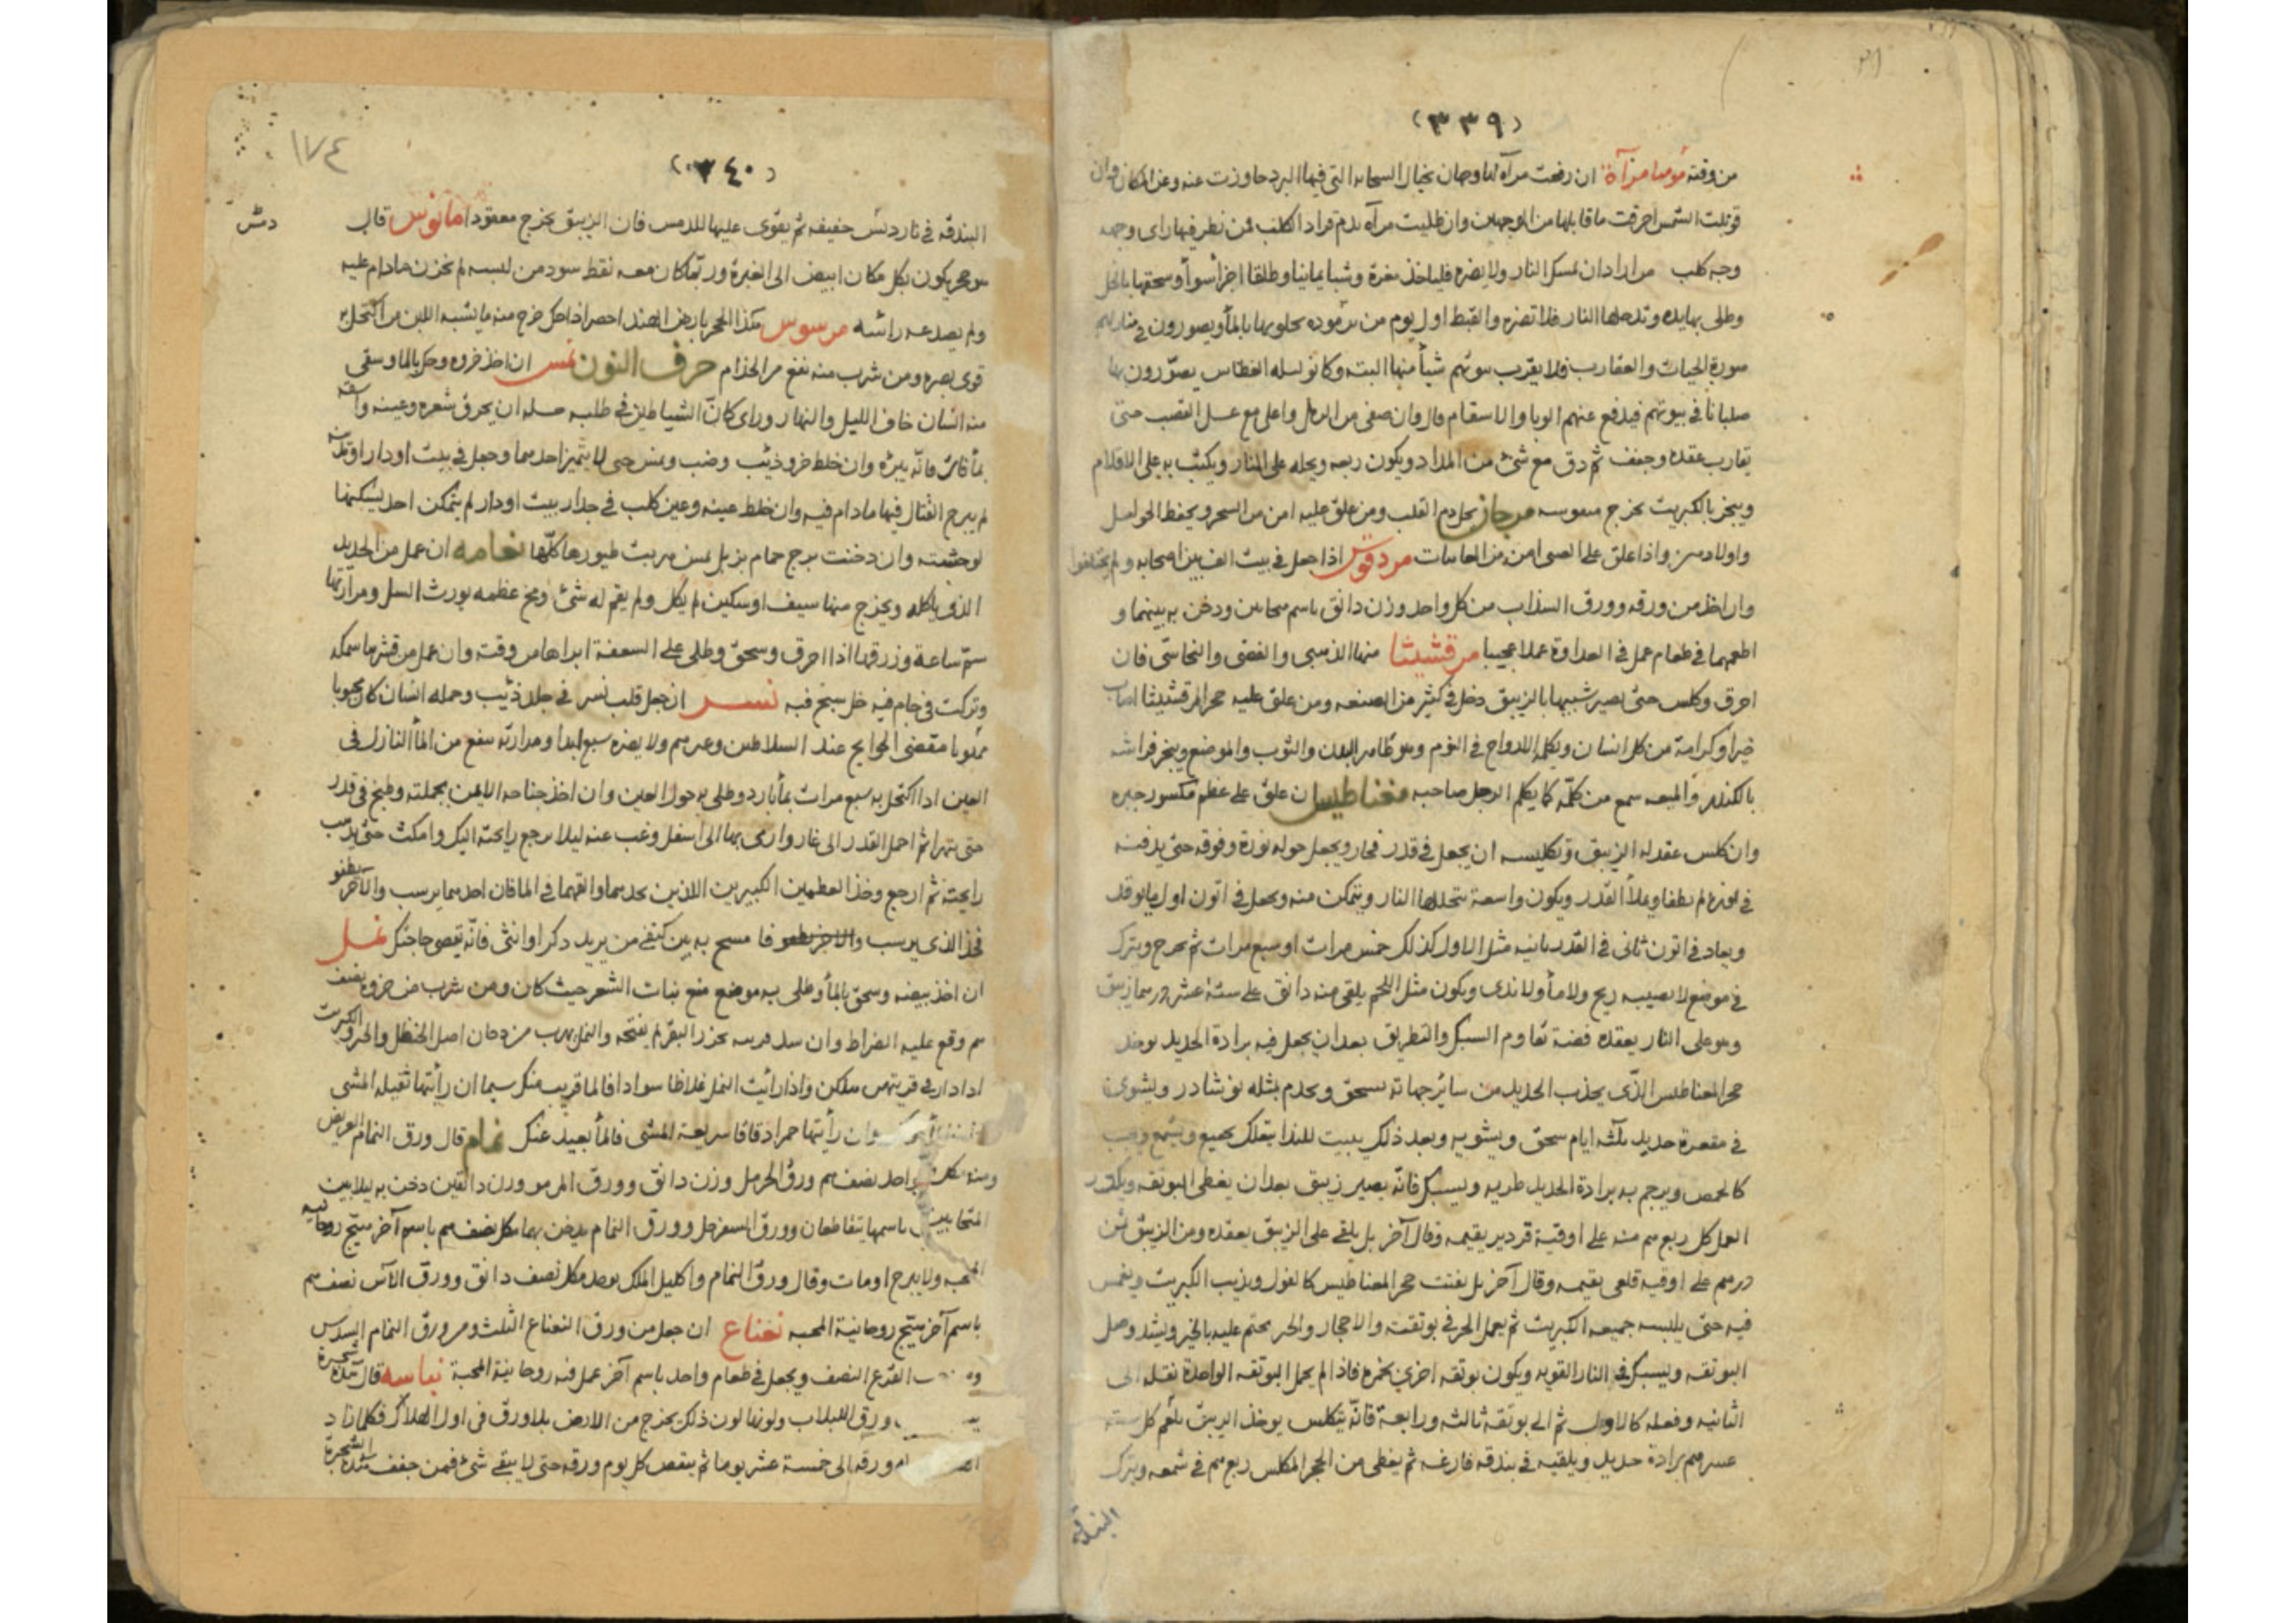 (٣٣٩)
من وقته موميا مرآة ان رفعت مرآه لها وجهان بخيال السحابه التى فيها البرد جاوزت عنه وعن المكان وان
قوبلت الشمس احرقت ما قابلها من الوجهين وان طليت مرآه بدم قراد الكلب فمن نظر فيها راى وجهه
وجه كلب من اراد ان يمسك النار ولا يضره فلياخذ مغرة وشبا يمانيا وطلقا اجزأ سوأ وسحقها بالخل
وطلى بها يده وتدخلها النار فلا تضره والقبط اول يوم من برموده يحلو بها بالمأ ويصورون فى منازلهم
صورة الحيات والعقارب فلا يقرب بيوتهم شيأ منها البته وكانو لسله الغطاس يصوّرون بها
صلبانا فى بيوتهم فيدفع عنهم الوبا والاسقام قال وان صفى من الرمل واعلى مع عسل القصب حتى
يقارب عقده وجفف ثم دق مع شئ من المداد ويكون ربعه ويحله على النار ويكتب به على الاقلام
ويبخر بالكبريت يخرج مرجان يحل دم القلب ومن علق عليه امن من السحر ويحفظ الحوامل
واولادهن واذا علق على الصبى امن من العاهات مردقوش اذا جعل فى بيت الف بين اصحابه ولم يختلفوا
وان اخذ من ورقه وورق السذاب من كل واحد وزن دانق باسم متحابين ودخن به بينهما و
اطعمهما فى طعام عمل فى العداوة عملا عجيبا مرقشيثا منها الذهبى والفضى والنحاسى فان
احرق وكلس حتى يصير شبيها بالزيبق دخل فى كثير من الصنعه ومن علق عليه حجر المرقشيثا اصاب
خيرا وكرامة من كل انسان ويكلمه الارواح فى النوم وهو طاهر البدن والثوب والموضع ويبخر فراشه
بالكندر والميعه سمع من كلّمه كما يكلم الرجل صاحبه مغناطيس ان علق على عظم مكسور جبره
وان كلس عقد له الزيبق وتكليسه ان يجعل فى قدر فخار ويجعل حوله نورة وفوقه حتى يدفنه
فى نورة لم تطفا ويملأ القدر ويكون واسعة يتخللها النار ويتمكن منه ويجعل فى اتون اول ما يوقد
ويعاد فى اتون ثانى فى القدر ثانيه مثل الاول كذلك خمس مرات او سبع مرات ثم يخرج ويترك
فى موضع لا يصيبه ريح ولا مأ ولا ندى ويكون مثل اللحم يلقى منه دانق على ستة عشر درهما زيبق
وهو على النار يعقده فضة تقاوم السبك والتطريق بعد ان يجعل فيه برادة الحديد يوخذ
حجر المغناطيس الذى يجذب الحديد من سائر جهاته يسحق ويخدم بمثله نوشادر ويشوى
فى مقعرة حديد ثلثه ايام سحق وتشويه وبعد ذلك يبيت للندا
كالحمص ويرجم به برادة الحديد طريه ويسبك فانّه يصير زيبق بعد ان يغطى البوتقه ويكرر
العمل كل ربع درهم منه على اوقية قزدير يقيمه وقال آخر بل يلقى على الزيبق يعقده ومن الزيبق ثمن
درهم على اوقيه قلعى يقيمه وقال آخر بل يفتت حجر المغناطيس كالفول ويذيب الكبريت ويغمس
فيه حتى يلبسه جميعه الكبريت ثم يعمل الحجر فى بوتقته والاحجار
البوتقه ويسبك فى النار القويه ويكون بوتقه اخرى بخمره فاذا لم يحمل البوتقه الواحدة نقله الى
الثانيه وفعله كالاول ثم الى بوتقة ثالثه ورابعة فانّه يتكلس يوخذ الزيبق يلغم كل سته
عشر درهم برادة حديد ويلقيه فى بندقه فارغه ثم يغطى من الحجر المكلس ربع درهم فى شمعه ويترك
البندقه
١٧٤
(٣٤٠)
البندقه فى نار دمس خفيفه ثم يقوى عليها للدمس فان الزيبق يخرج معقودا مانوس قال
دمس
هو حجر يكون بكل مكان ابيض الى الغبرة وربّما كان معه نقط سود من لبسه لم يحزن ما دام عليه
ولم يصدعه راسه مرسوس هكذا الحجر بارض الهند اخضر اذا حك خرج منه ما يشبه اللبن من اكتحل به
قوى بصره ومن شرب منه نفع من الجذام حرف النون نمس ان اخذ خروه وحل بالما وسقى
منه انسان خاف الليل والنهار وراى كانّ الشياطين فى طلبه حله ان يحرق شعره وعينه واسقه
بمأ فاتر فانّه يبرئ وان خلط خرو ذئب وضب ونمس حتى لا يتميز احدهما وجعل فى بيت او دار او
لم يبرح القتال فيها ما دام فيه وان خلط عينه وعين كلب فى جدار بيت او دار لم يتمكن احد يسكنها
لوحشته وان دخنت برج حمام بزبل نمس هربت طيورها كلّها نعامه ان عمل من الحديد
الذى ياكله ويخرج منها سيف او سكين لم يكل ولم يقم له شئ ومخ عظمه يورث السل ومرارتها
سمّ ساعة وزرقها اذا احرق وسحق وطلى على السعفة ابراها من وقته وان عمل من قشرها سمكه
وتركت فى جام فيه خل سبح فيه نسر ان جعل قلب نسر فى جلد ذئب وحمله انسان كان محبوبا
مقضى الحوايج عند السلاطين وغيرهم ولا يضره سبع ابدا ومرارته ينفع من المأ النازل فى
العين اذا اكتحل به سبع مرات بمأ بارد وطلى به حول العين وان اخذ جناحه الايمن بجملته وطبخ فى قدر
حتى يتهرا ثم احمل القدر الى غار وارمى بها الى اسفل وغب عنه ليلا يرجع رايحته اليك وامكث حتى يذهب
رايحته ثم ارجع وخذ العظمين الكبيرين اللذين تجدهما والقهما فى الما فان احدهما يرسب والآخر يطفو
فخذ الذى يرسب و فا مسح به بين كتفى من يريد ذكر او انثى فانّه يقضى حاجتك نمل
ان اخذ بيضه وسحق بالمأ وطلى به موضع منع نبات الشعر حيث كان ومن شرب من خروه نصف
درهم وقع عليه الضراط وان سد قريته بخرو البقر لم يفتحه والنمل يهرب من دخان اصل الحنظل والخرو والكبريت
اذا دار فى قريتهن هلكن واذا رايت النمل غلاظا سوادا فالما قريب منك سيما ان رأيتها ثقيلة المشى
وان رأيتها حمرا دقاقا سريعة المشى فالمأ بعيد عنك نمام قال ورق النمام العريض
ومنه واحد نصف درهم ورق الحرمل وزن دانق وورق المرمر وزن دانقين دخن به ليلا بين
المتحابين باسمها يتقاطعان وورق السفرجل وورق النمام يدخن بهما كل نصف درهم باسم آخر يبتج روحانيه
المحبه ولا يبرح او مات وقال ورق النمام واكليل الملك يوخذ من كل نصف دانق وورق الآس نصف درهم
باسم آخر يتبّج روحانية المحبه نعناع ان جعل من ورق النعناع الثلث ومن ورق النمام السدس
القرع النصف ويجعل فى طعام واحد باسم آخر عمل فنه روحانية المحبة نباسه قال هذه شجرة
ورق اللبلاب ولونها لون ذلك يخرج من الارض بلا ورق فى اول الهلال فكلما زاد
ورقه الى خمسة عشر يوما ثم ينقص كل يوم ورقه حتى لا يبقى شئ فمن جفف هذه الشجرة